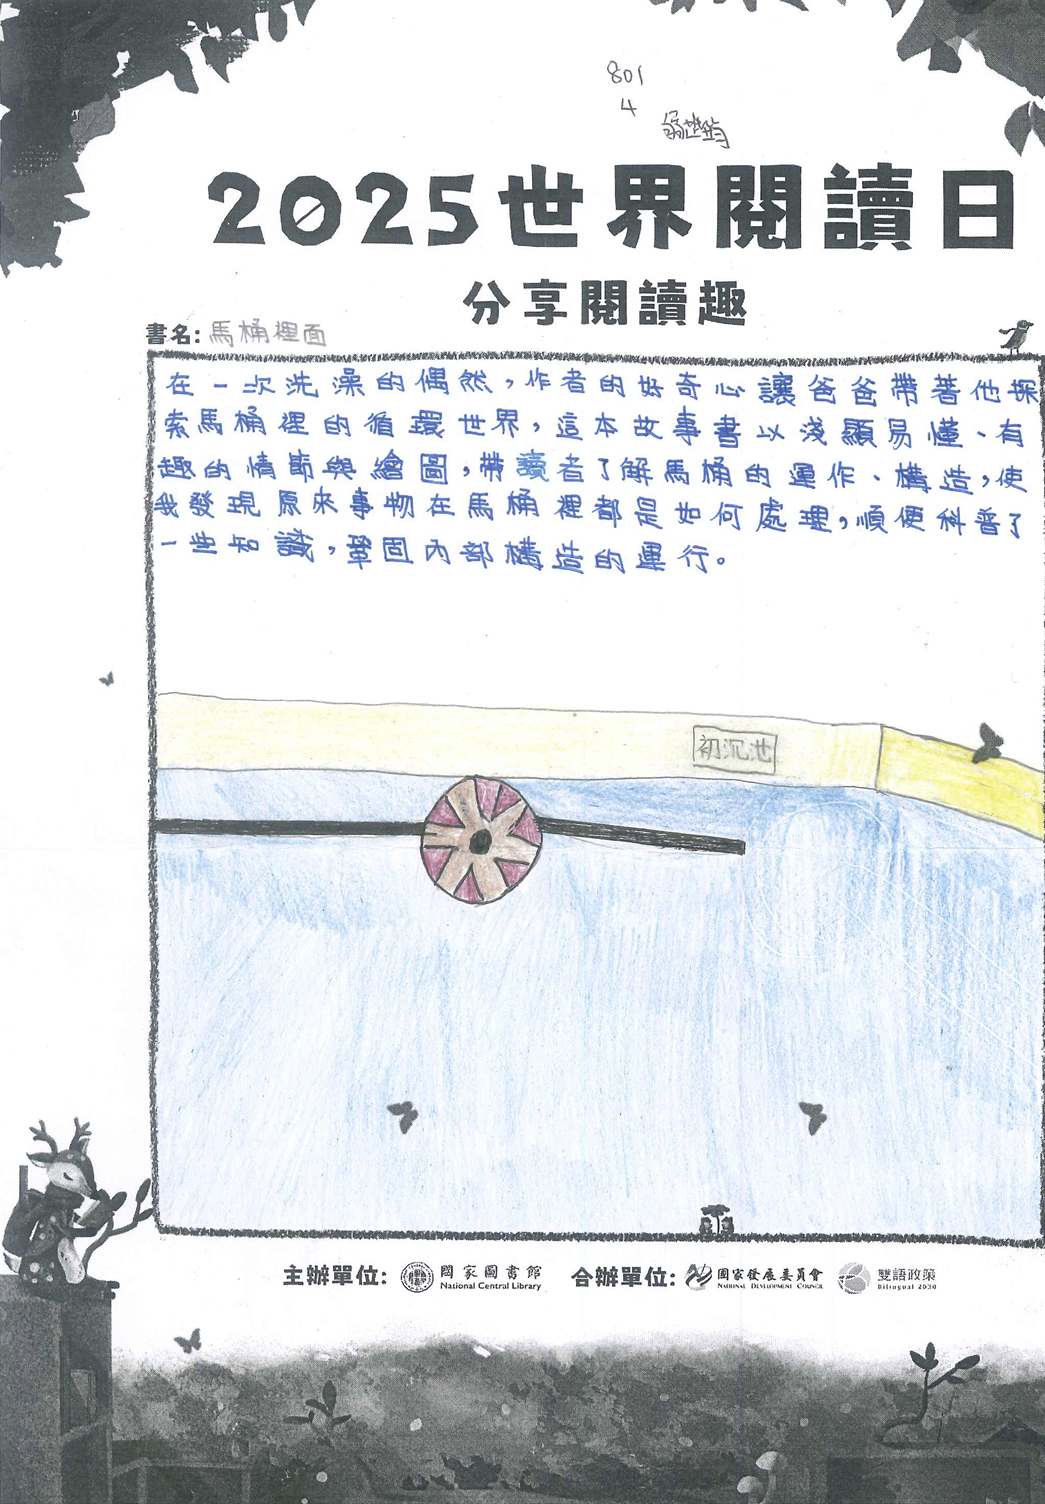 801
4
2025世界閱讀日
分享閱讀趣
書名: 馬桶裡面
在一次洗澡的偶然，作者的好奇心讓爸爸帶著他探
索馬桶裡的循環世界，這本故事書以淺顯易懂、有
趣的情節與繪圖，帶讀者了解馬桶的運作、構造，使
我發現原來事物在馬桶裡都是如何處理，順便科普了
一些知識，鞏固內部構造的運行。
初沉池
主辦單位: 國家圖書館 National Central Library 合辦單位: 國家發展委員會 National Development Council 雙語政策 Bilingual 2030